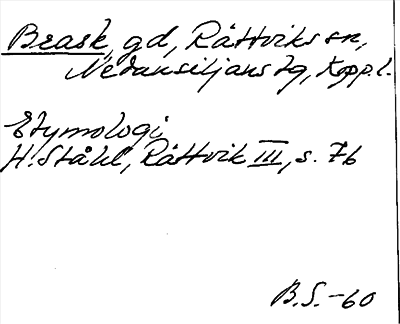 Brask, gd, Rättviks sn,
Nedansiljans tg, Kopp.l.
Etymologi
H. Ståhl, Rättvik III, s. 76
B.S.-60